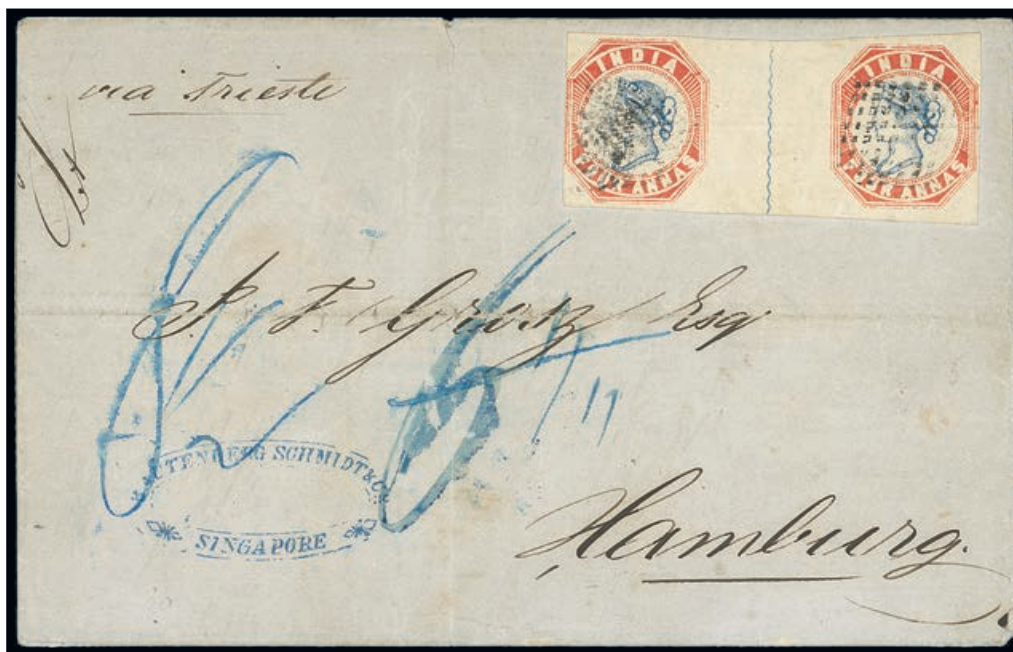 via Trieste
INDIA
FOUR ANNAS
INDIA
FOUR ANNAS
Esq
RAUTENBERG SCHMIDT & Co
SINGAPORE
Hamburg.